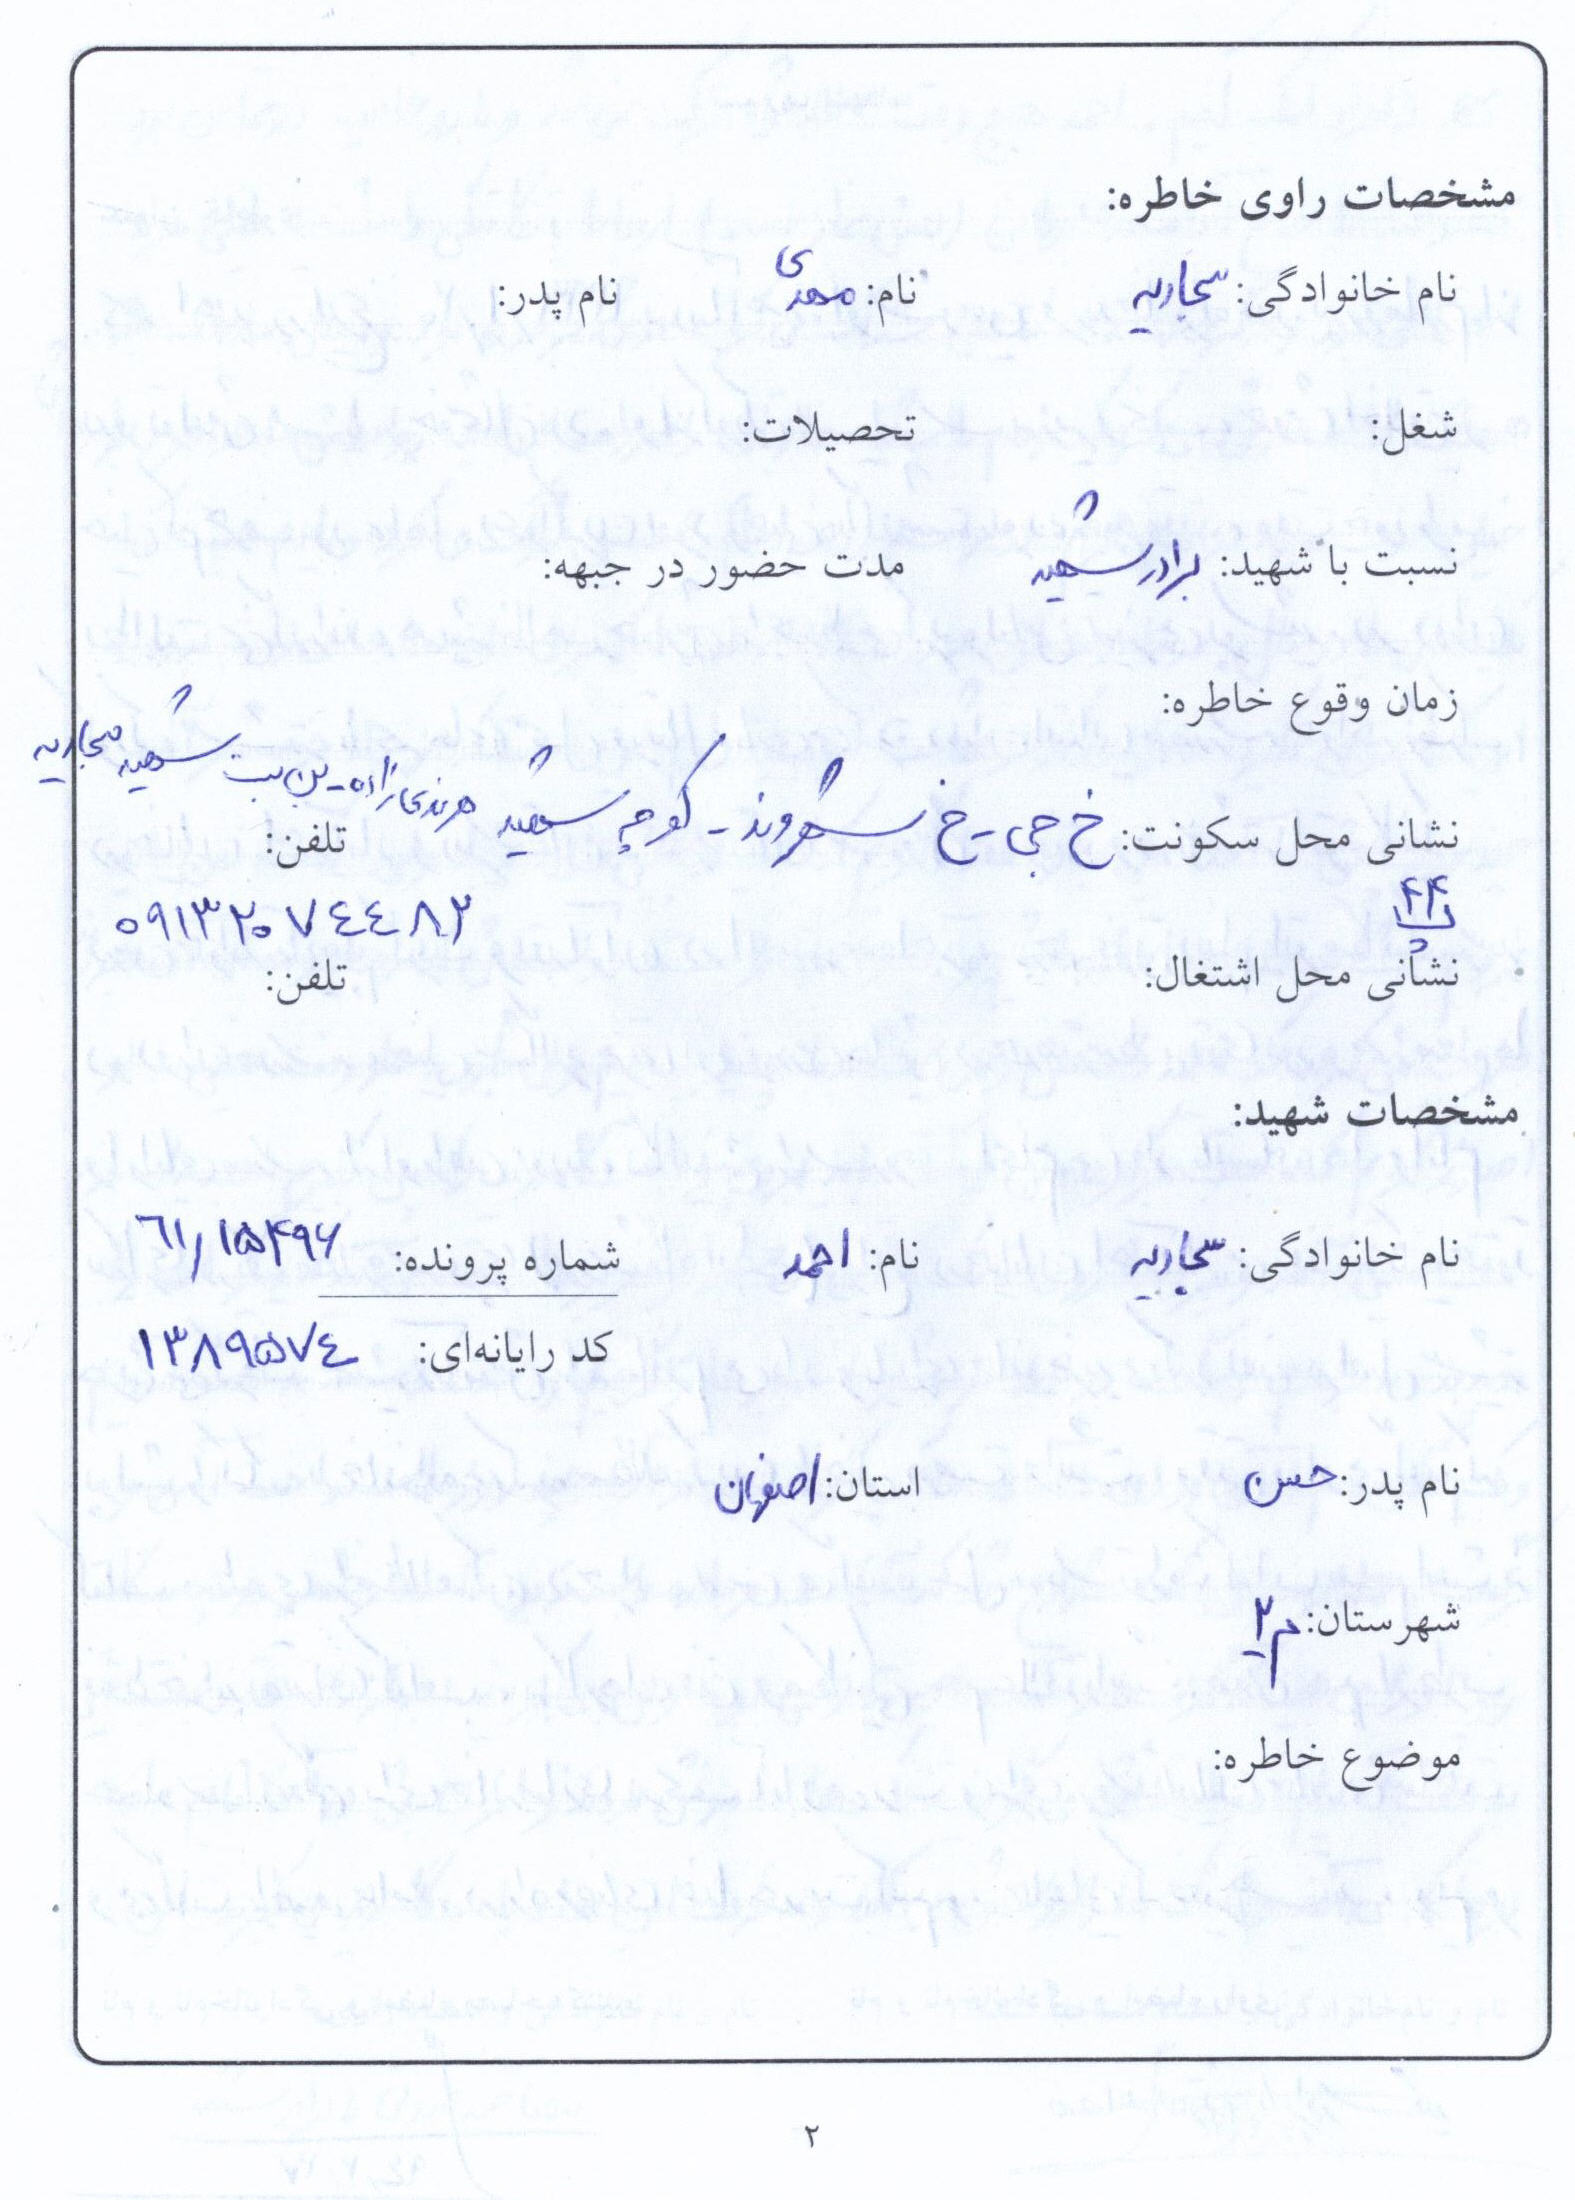 مشخصات راوی خاطره:
نام خانوادگی: سجادیه نام: مهدی نام پدر:
شغل: تحصیلات:
نسبت با شهید: برادر شهید مدت حضور در جبهه:
زمان وقوع خاطره:
نشانی محل سکونت: خ جی - خ شهروند - کوچه شهید - بن بست شهید سجادیه تلفن:
پلاک ۴۴ ۰۹۱۳۲۰۷۴۴۸۲
نشانی محل اشتغال: تلفن:
مشخصات شهید:
نام خانوادگی: سجادیه نام: احمد شماره پرونده: ۶۱/۱۵۴۹۶
کد رایانه‌ای: ۱۳۸۹۵۷۴
نام پدر: حسن استان: اصفهان
شهرستان: م ۲
موضوع خاطره:
۲